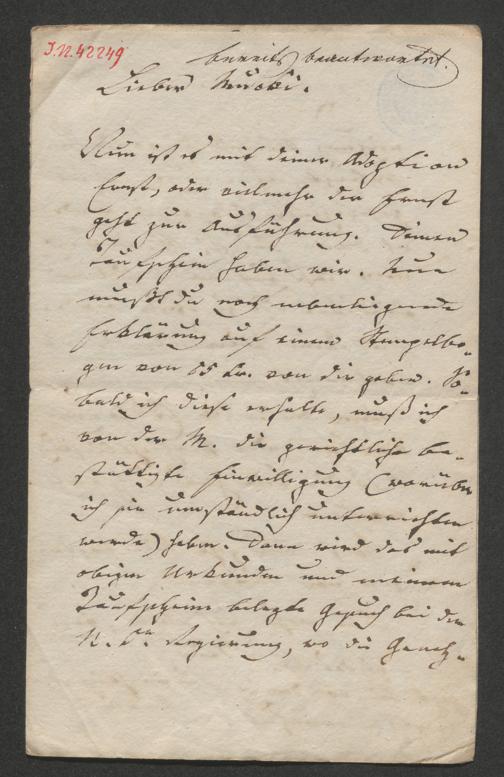 J.N. 42249
bereits beantwortet.
Lieber Muski.
Nun ist es mit deiner Adoption
Ernst, oder vielmehr der Ernst
geht zur Ausführung. Deinen
Taufschein haben wir. Nun
mußt du noch nebenliegende
Erklärung auf einem Stempelbo-
gen von 85 kr. von dir geben. So-
bald ich diese erhalte, muß ich
von der M. die gerichtliche be-
stättigte Einwilligung (worüber
ich sie umständlich unterrichten
werde) haben. Dann wird das mit
obigen Urkunden und meinem
Taufscheine belegte Gesuch bei der
N. Regierung, wo die Geneh-